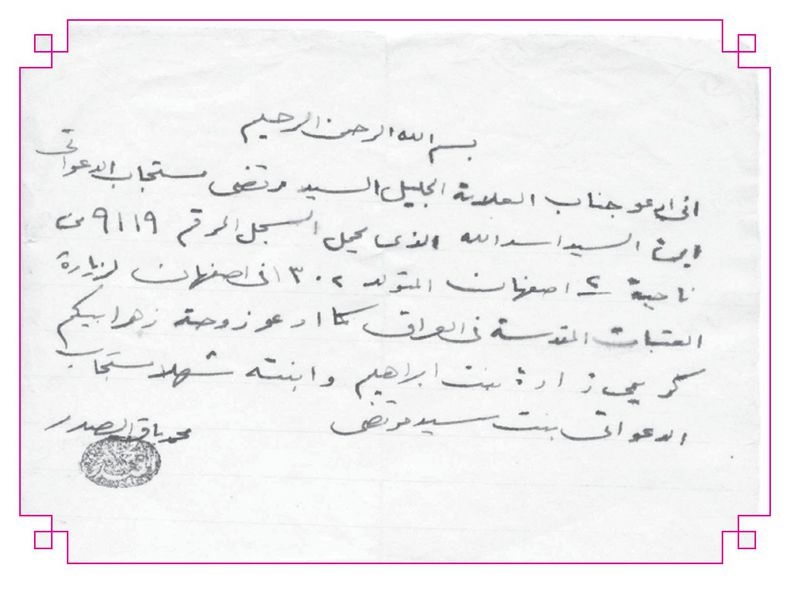 بسم الله الرحمن الرحيم
انى ادعو جناب العلامة الجليل السيد مرتضى مستجاب الدعواتى
ابن السيد اسد الله الذى يحمل السجل المرقم ٩١١٩ من
ناحية ٢ اصفهان المتولد ١٣٠٢ فى اصفهان لزيارة
العتبات المقدسة فى العراق كما ادعو زوجته زهرا بيكم
كريمى زاده بنت ابراهيم وابنته شهلا مستجاب
الدعواتى بنت سيد مرتضى
محمد باقر الصدر